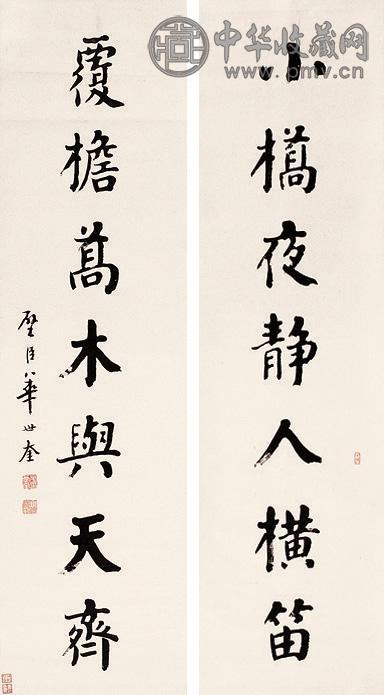 中华收藏网
www.pmv.cn
小橋夜靜人橫笛
覆檐高木與天齊
璧臣華世奎